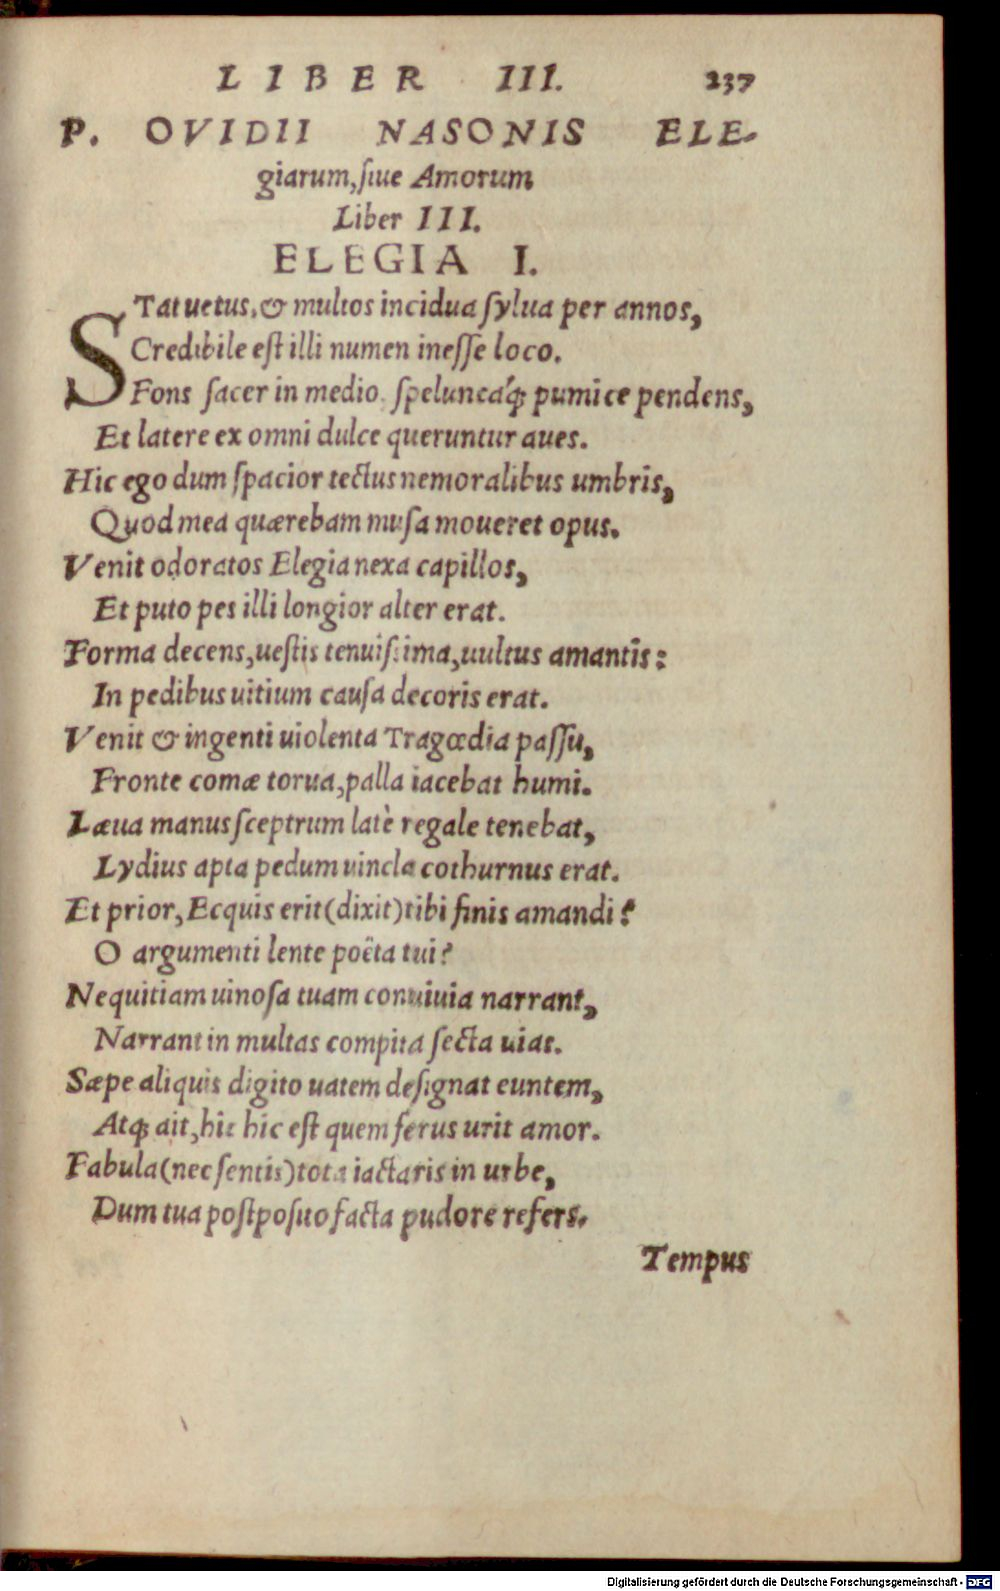 LIBER III. 237
P. OVIDII NASONIS ELE-
giarum, ſiue Amorum
Liber III.
ELEGIA I.
STat uetus, & multos incidua ſylua per annos,
Credibile eſt illi numen ineſſe loco.
Fons ſacer in medio, ſpeluncáq; pumice pendens,
Et latere ex omni dulce queruntur aues.
Hic ego dum ſpacior tectus nemoralibus umbris,
Quod mea quærebam muſa moueret opus.
Venit odoratos Elegia nexa capillos,
Et puto pes illi longior alter erat.
Forma decens, ueſtis tenuiſsima, uultus amantis:
In pedibus uitium cauſa decoris erat.
Venit & ingenti uiolenta Tragœdia paſſu,
Fronte comæ torua, palla iacebat humi.
Læua manus ſceptrum latè regale tenebat,
Lydius apta pedum uincla cothurnus erat.
Et prior, Ecquis erit (dixit) tibi finis amandi?
O argumenti lente poëta tui?
Nequitiam uinoſa tuam conuiuia narrant,
Narrant in multas compita ſecta uias.
Sæpe aliquis digito uatem deſignat euntem,
Atq; ait, hic hic eſt quem ferus urit amor.
Fabula (nec ſentis) tota iactaris in urbe,
Dum tua poſtpoſito facta pudore refers.
Tempus
Digitalisierung gefördert durch die Deutsche Forschungsgemeinschaft - DFG